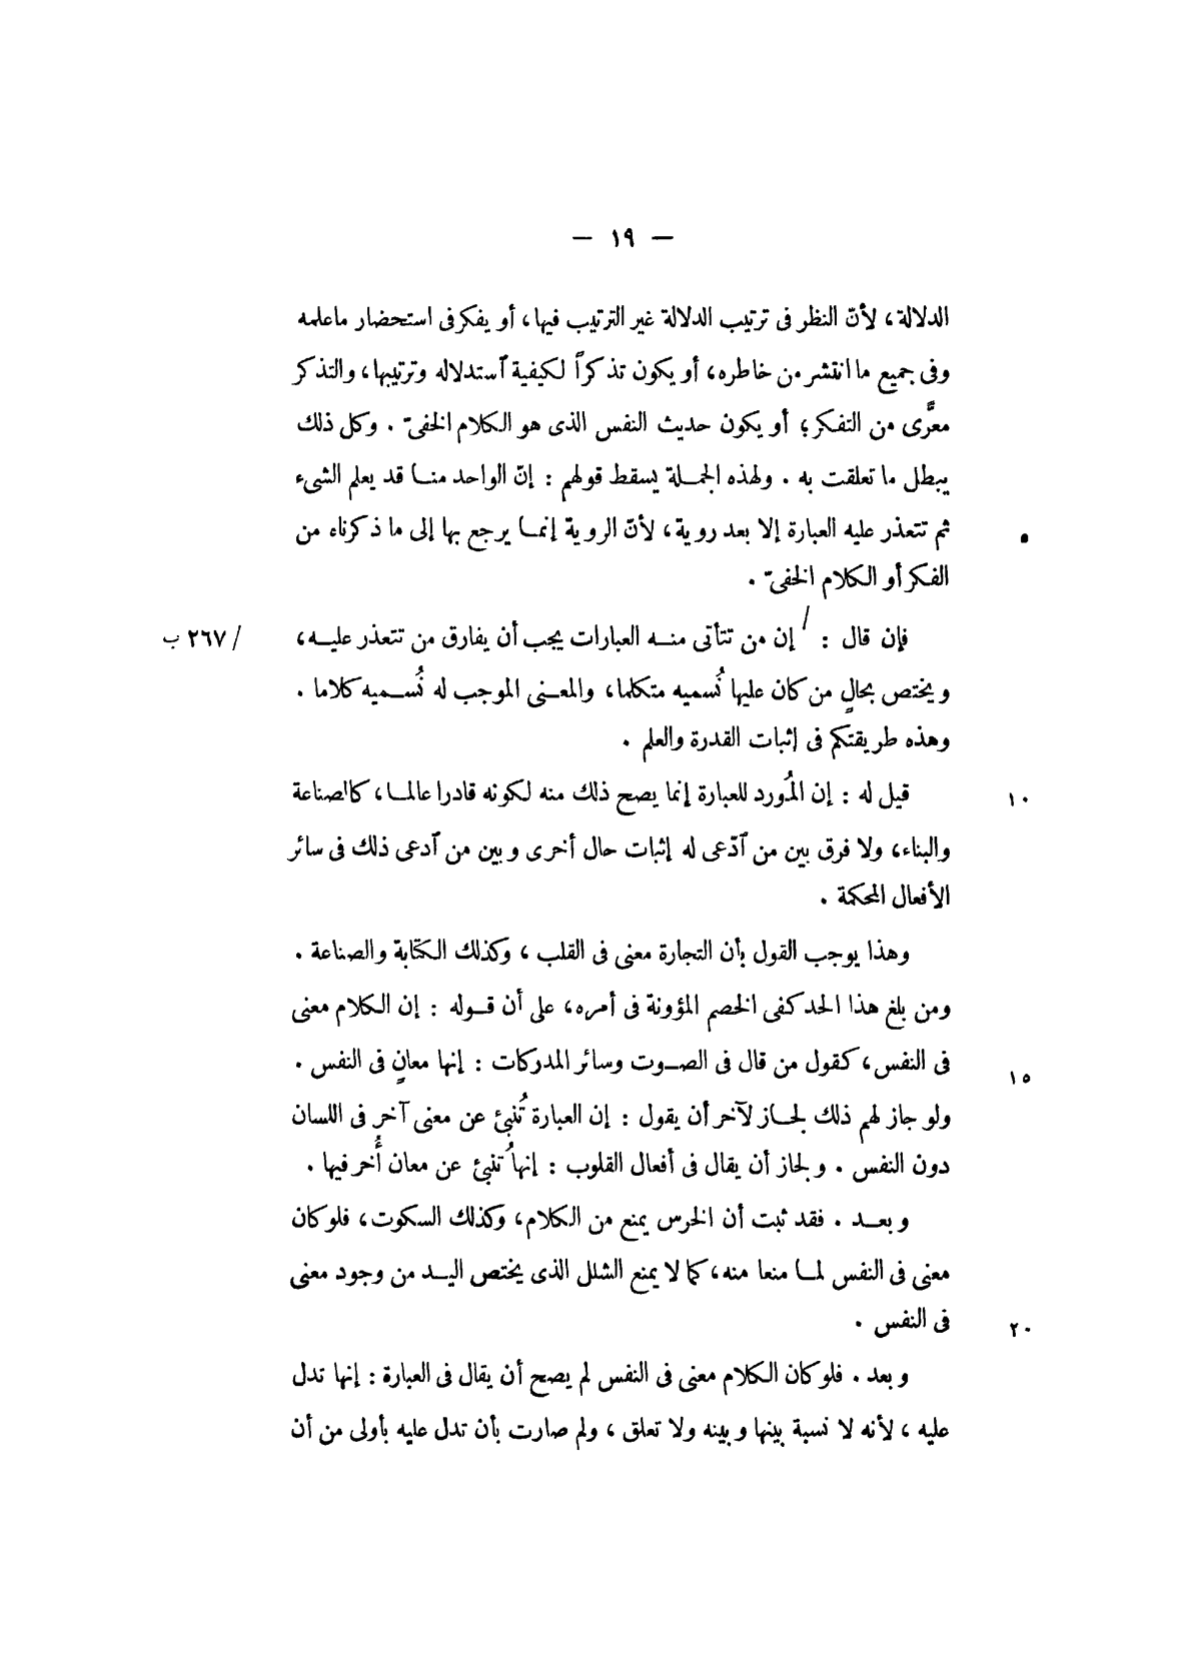 — ١٩ —
الدلالة، لأنّ النظر فى ترتيب الدلالة غير الترتيب فيها، أو يفكر فى استحضار ماعلمه
وفى جميع ما انتشر من خاطره، أو يكون تذكراً لكيفية ٱستدلاله وترتيبها، والتذكر
معرًّى من التفكر؛ أو يكون حديث النفس الذى هو الكلام الخفىّ . وكل ذلك
يبطل ما تعلقت به . ولهذه الجمــلة يسقط قولهم : إنّ الواحد منــا قد يعلم الشىء
ثم تتعذر عليه العبارة إلا بعد روية، لأنّ الروية إنمــا يرجع بها إلى ما ذكرناء من ٥
الفكر أو الكلام الخفىّ .
فإن قال : / إن من تتأتى منــه العبارات يجب أن يفارق من تتعذر عليــه، / ٢٦٧ ب
ويختص بحالٍ من كان عليها نُسميه متكلما، والمعــنى الموجب له نُســميه كلاما .
وهذه طريقتكم فى إثبات القدرة والعلم .
قيل له : إن المُورد للعبارة إنما يصح ذلك منه لكونه قادرا عالمــا، كالصناعة ١٠
والبناء، ولا فرق بين من ٱدّعى له إثبات حال أخرى وبين من ٱدعى ذلك فى سائر
الأفعال المحكمة .
وهذا يوجب القول بأن التجارة معنى فى القلب ، وكذلك الكتابة والصناعة .
ومن بلغ هذا الحد كفى الخصم المؤونة فى أمره، على أن قــوله : إن الكلام معنى
فى النفس، كقول من قال فى الصــوت وسائر المدركات : إنها معانٍ فى النفس . ١٥
ولو جاز لهم ذلك لجــاز لآخر أن يقول : إن العبارة تُنبئ عن معنى آخر فى اللسان
دون النفس . ولجاز أن يقال فى أفعال القلوب : إنها تُنبئ عن معان أُخر فيها .
وبعــد . فقد ثبت أن الخرس يمنع من الكلام، وكذلك السكوت، فلو كان
معنى فى النفس لمــا منعا منه، كما لا يمنع الشلل الذى يختص اليــد من وجود معنى
فى النفس . ٢٠
وبعد . فلو كان الكلام معنى فى النفس لم يصح أن يقال فى العبارة : إنها تدل
عليه ، لأنه لا نسبة بينها وبينه ولا تعلق ، ولم صارت بأن تدل عليه بأولى من أن